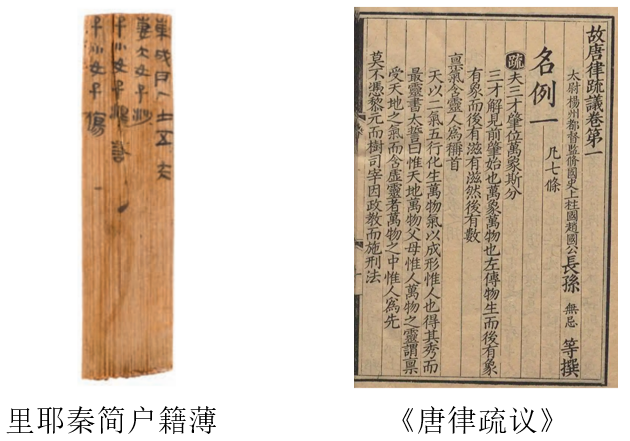 東成户人士五夫
妻大女子沙
子小女子澤若
子小女子傷
故唐律疏議卷第一
太尉楊州都督監脩國史上柱國趙國公長孫無忌等撰
名例一 凡七條
疏夫三才肇位萬象斯分
三才解見前肇始也萬象萬物也左傳物生而後有象
有象而後有滋有滋然後有數
稟氣含靈人爲稱首
天以二氣五行化生萬物氣以成形惟人也得其秀而
最靈書太誓曰惟天地萬物父母惟人萬物之靈謂稟
受天地之氣而含虛靈者萬物之中惟人爲先
莫不憑黎元而樹司宰因政教而施刑法
里耶秦简户籍薄
《唐律疏议》